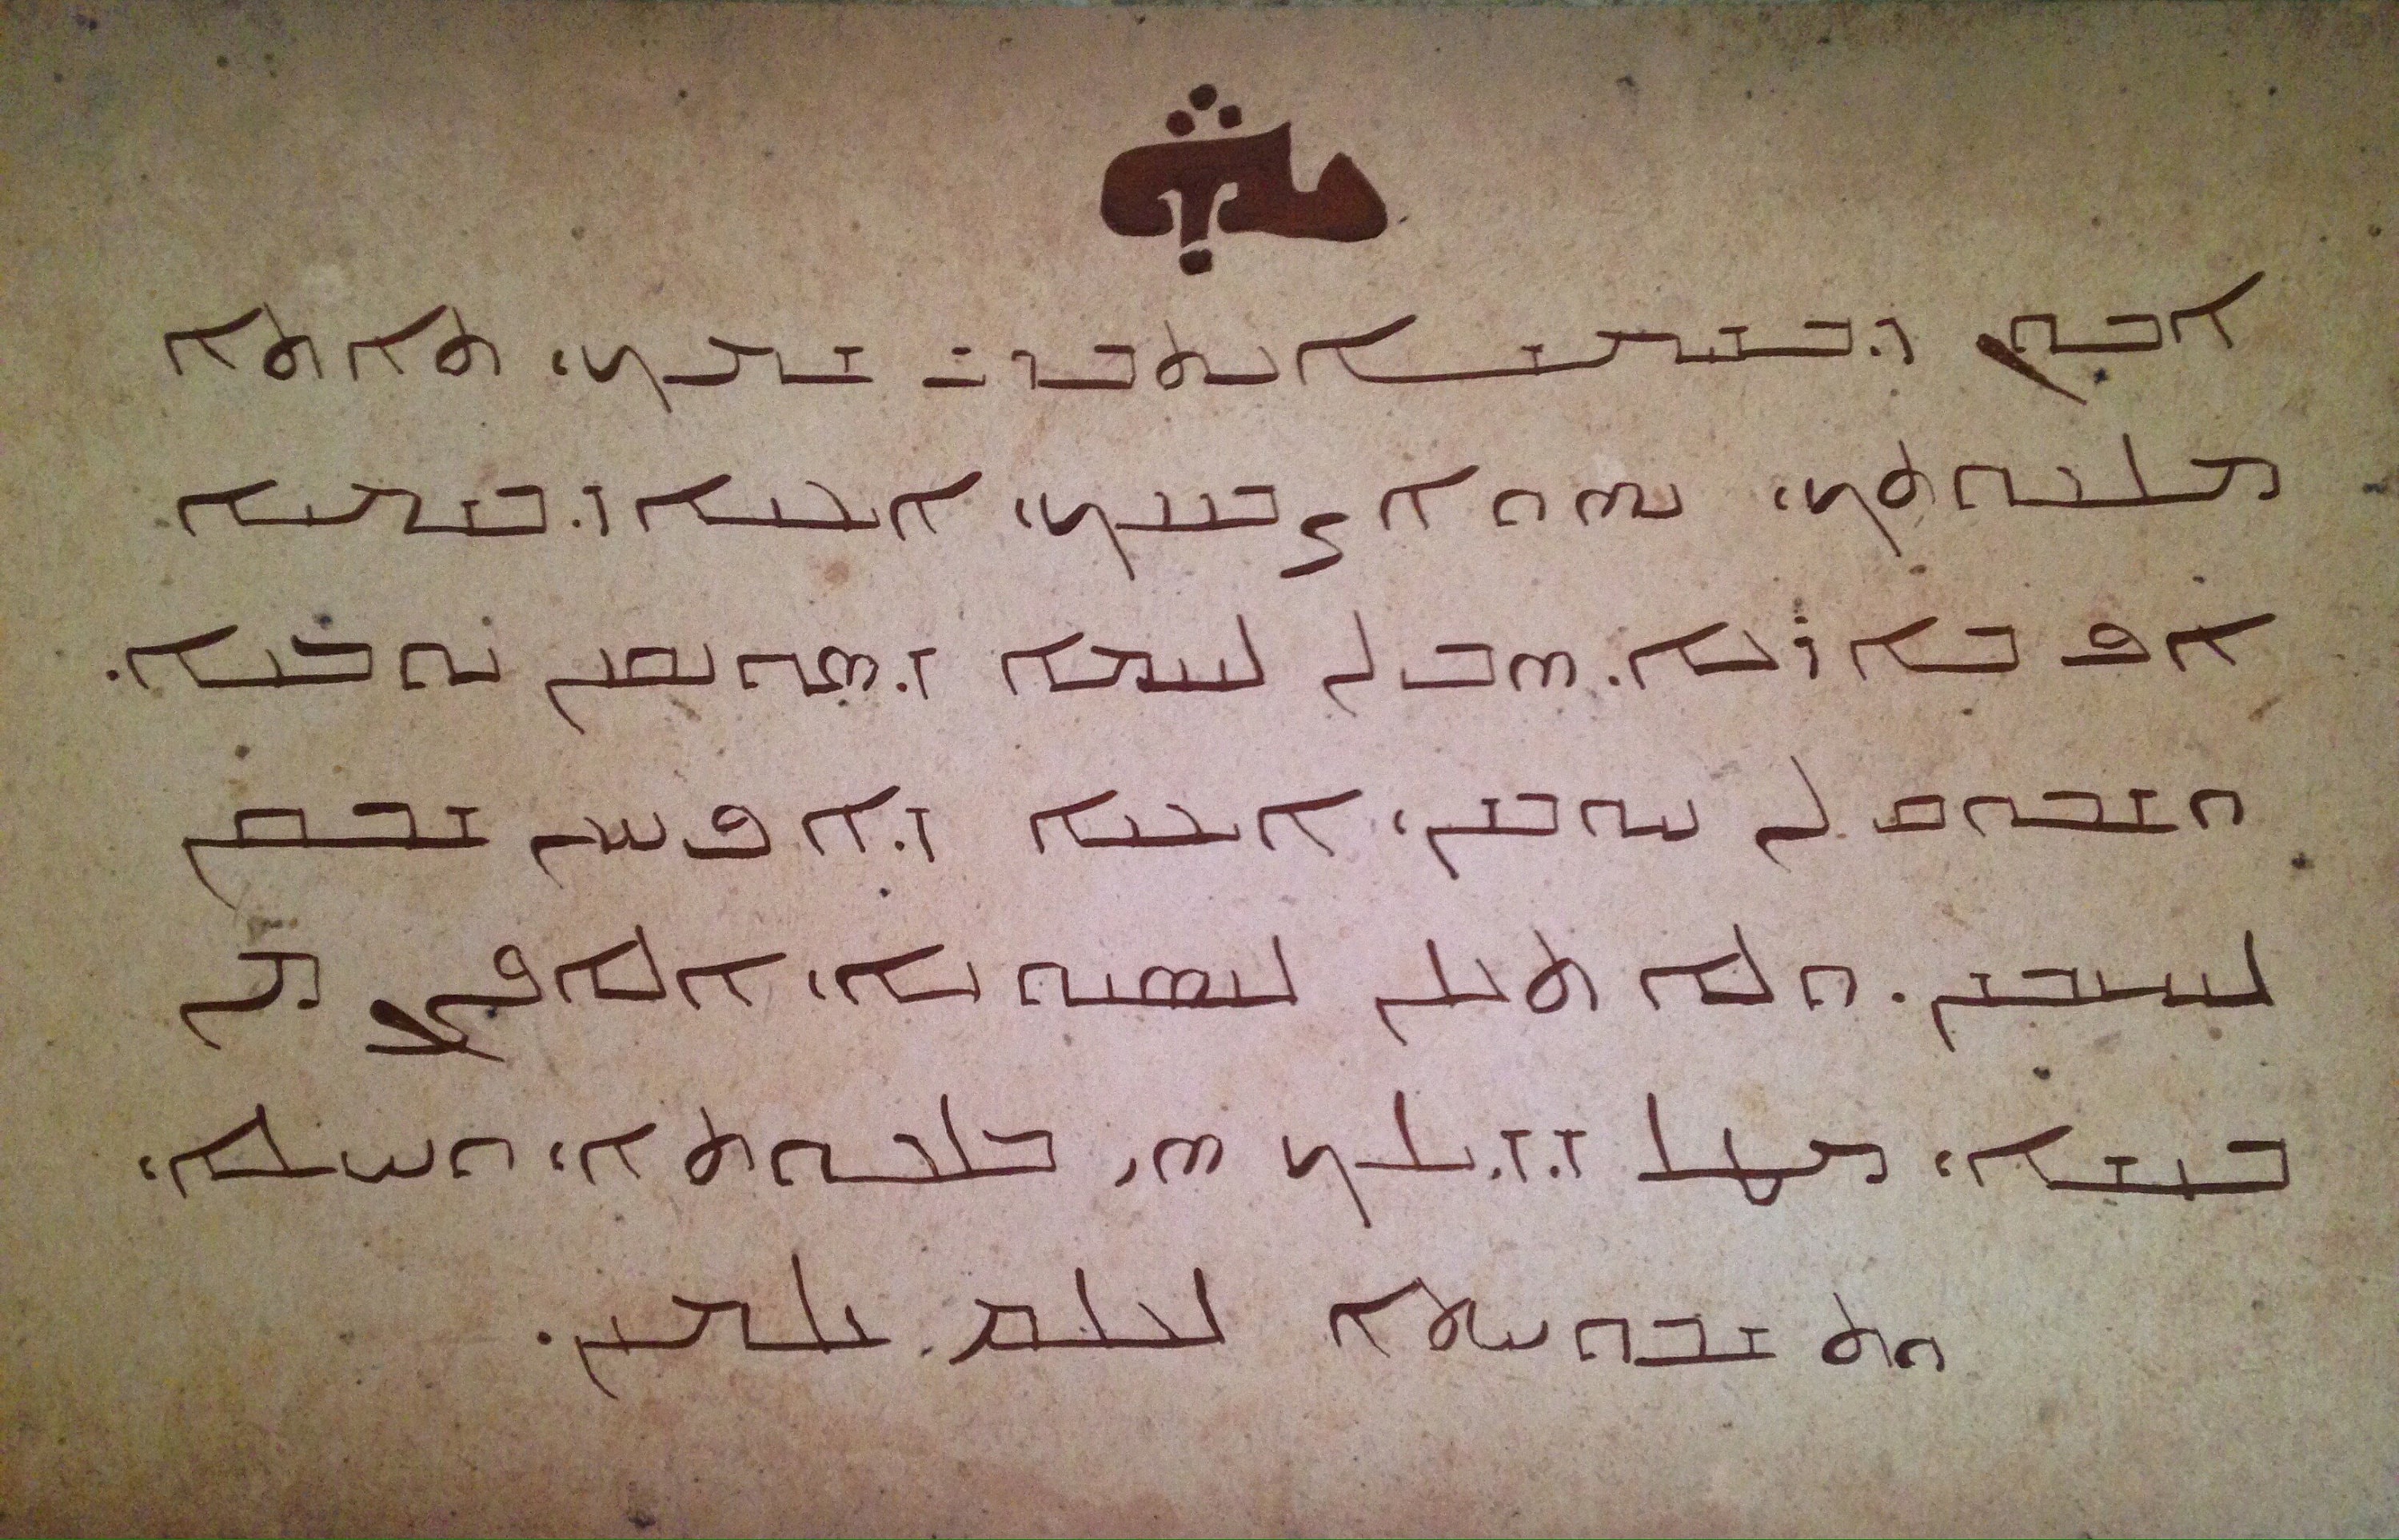 ܐܒܘܢ ܕܒܫܡܝܐ ܢܬܩܕܫ ܫܡܟ، ܬܐܬܐ
ܡܠܟܘܬܟ، ܢܗܘܐ ܨܒܝܢܟ، ܐܝܟܢܐ ܕܒܫܡܝܐ
ܐܦ ܒܐܪܥܐ. ܗܒ ܠܢ ܠܚܡܐ ܕܣܘܢܩܢܢ ܝܘܡܢܐ.
ܘܫܒܘܩ ܠܢ ܚܘܒܝܢ، ܐܝܟܢܐ ܕܐܦ ܚܢܢ ܫܒܩܢ
ܠܚܝܒܝܢ. ܘܠܐ ܬܥܠܢ ܠܢܣܝܘܢܐ، ܐܠܐ ܦܨܢ ܡܢ
ܒܝܫܐ، ܡܛܠ ܕܕܝܠܟ ܗܝ ܡܠܟܘܬܐ، ܘܚܝܠܐ،
ܘܬܫܒܘܚܬܐ ܠܥܠܡ ܥܠܡܝܢ.